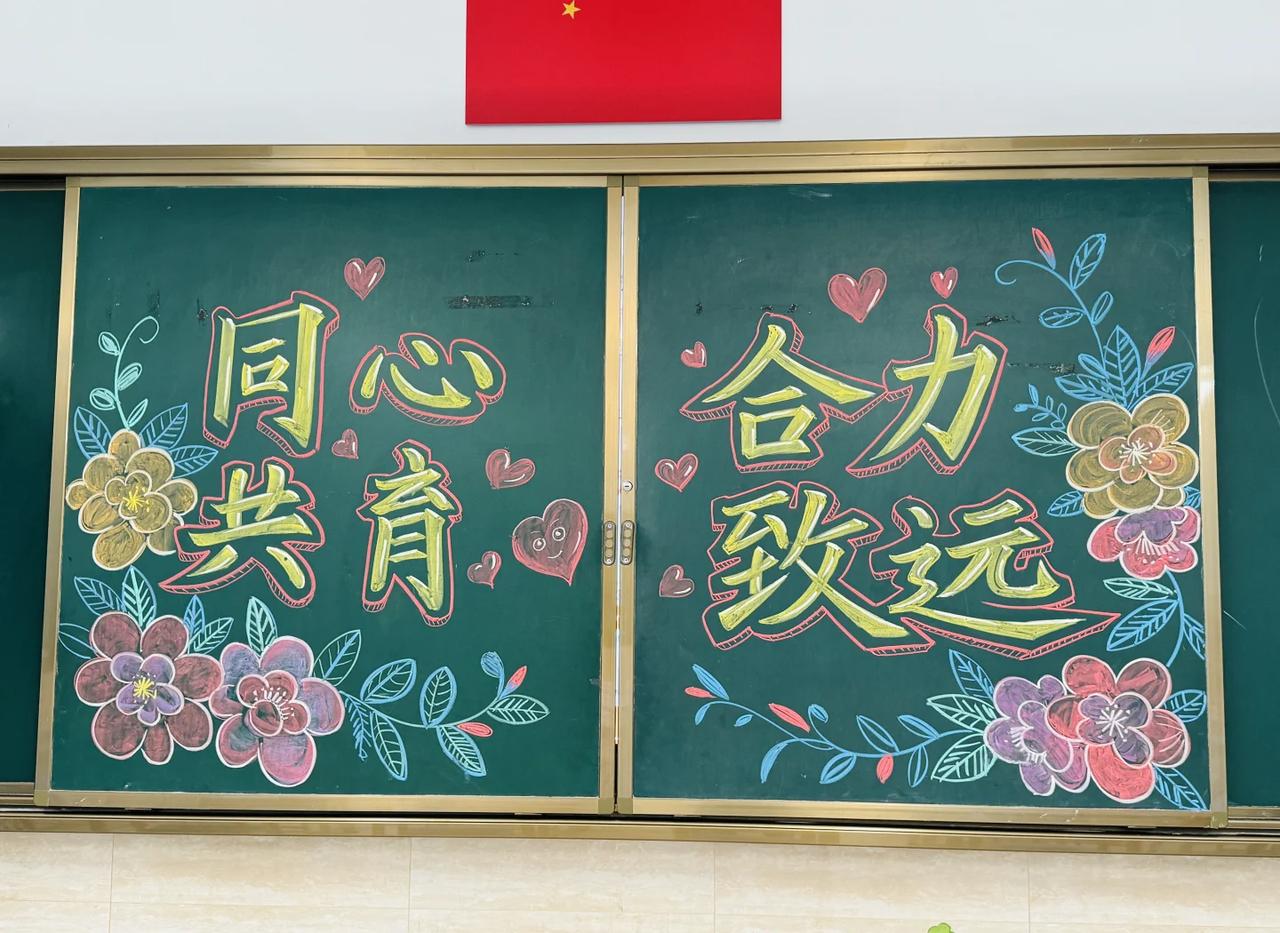 同心
共育
合力
致远